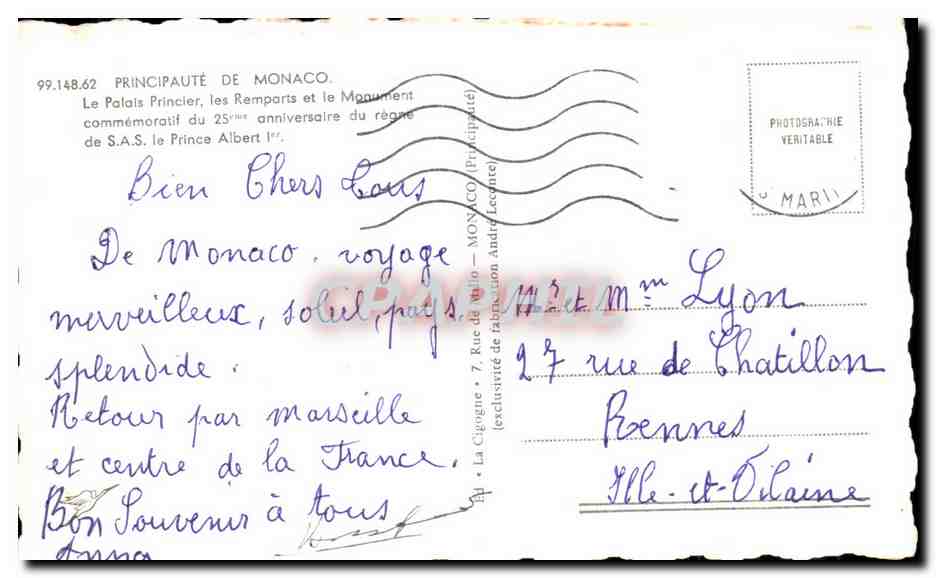 99.148.62 PRINCIPAUTÉ DE MONACO.
Le Palais Princier, les Remparts et le Monument
commémoratif du 25ème anniversaire du règne
de S.A.S. le Prince Albert Ier.
Bien Chers Tous
De Monaco. voyage
merveilleux, soleil, pays
splendide.
Retour par Marseille
et centre de la France.
Bon Souvenir à tous
Anna
Ed • La Cigogne • 7, Rue de Millo — MONACO (Principauté)
(exclusivité de fabrication André Leconte)
PHOTOGRAPHIE
VERITABLE
MARII
Mr et Mme Lyon
27 rue de Chatillon
Rennes
Ille-et-Vilaine